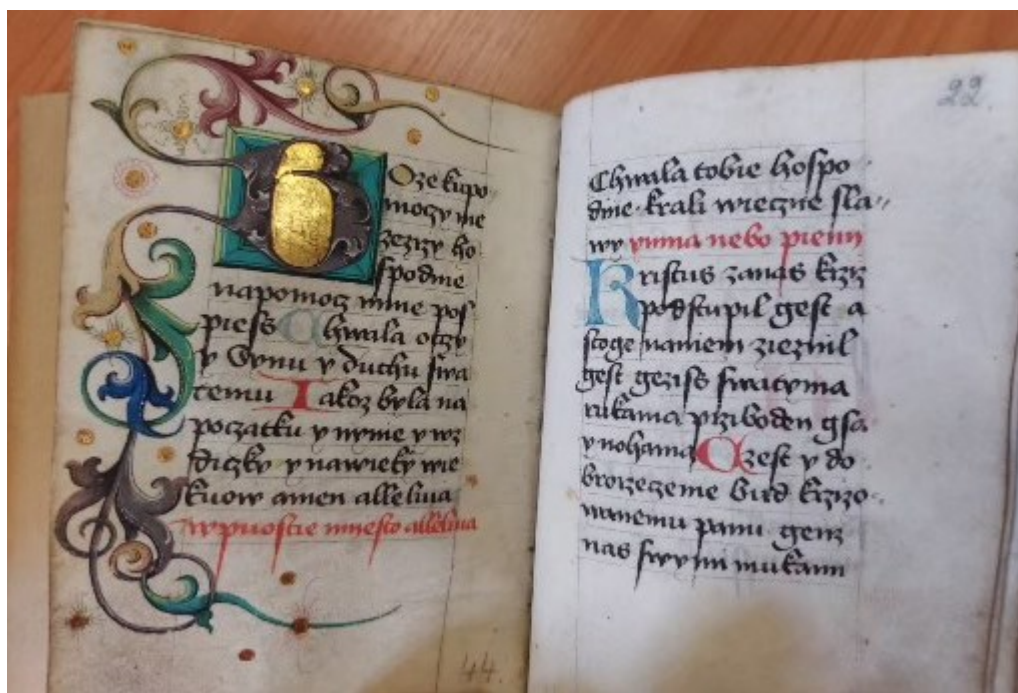 Oze kupo
moczy me
zezrzy ho
spodine
na pomocz mne pos
piess Chwala otczy
y Synu y duchu swa
temu Jakoz byla na
poczatku y nynie y wz
diczky y nawieky wie
kuow amen alleliua
w puostie miesto allelma
44.
22.
Chwala tobie hospo
dine krali wieczne sla
wy ymna nebo piesn
Kristus zanas krziz
podstupil gest a
stoge naniem zieznil
gest gezišs swatyma
rukama prziboden gsa
y nohama Czest y do
brorzeczeme bud krzizo
wanemu panu genz
nas swymi mukami